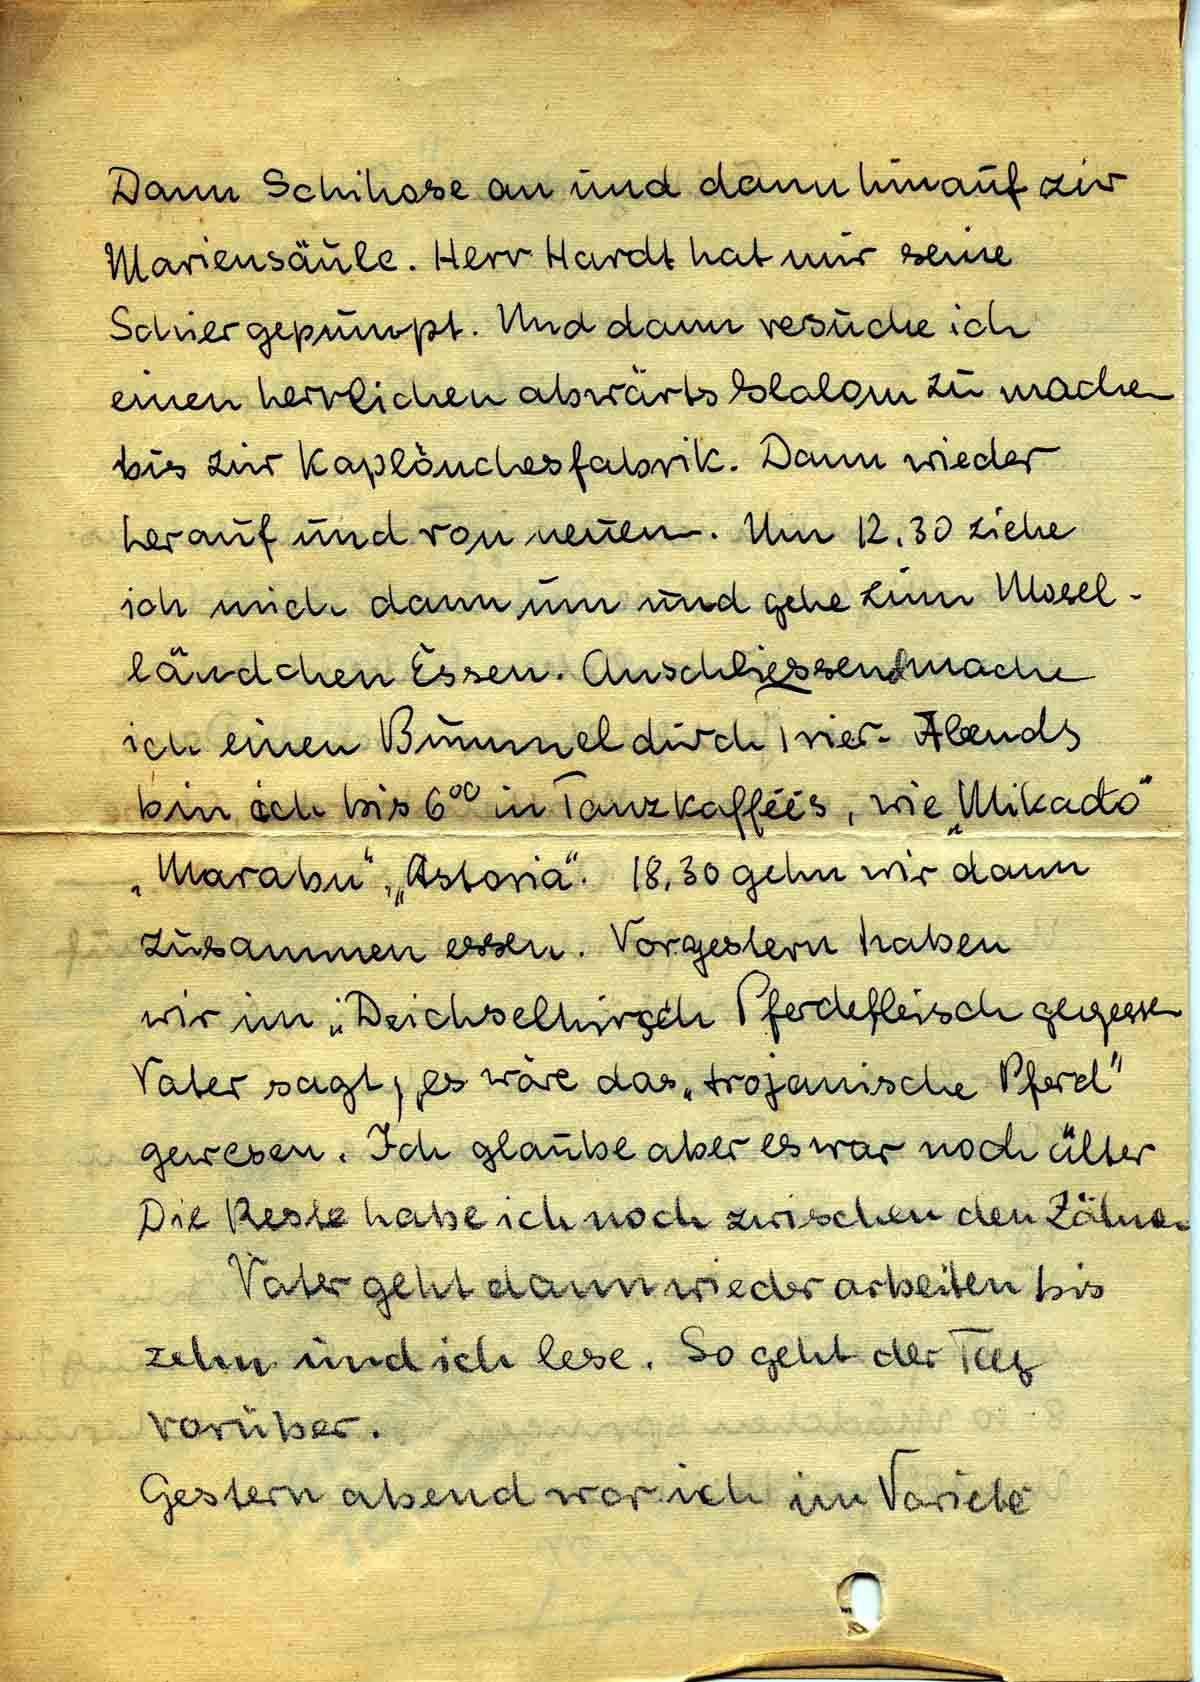 Dann Schihose an und dann hinauf zur
Mariensäule. Herr Hardt hat mir seine
Schier gepumpt. Und dann vesuche ich
einen herrlichen abwärts Slalom zu machen
bis zur Kaplönchesfabrik. Dann wieder
herauf und von neuen. Um 12,30 ziehe
ich mich dann um und gehe zum Mosel-
ländchen Essen. Anschliessend mache
ich einen Bummel durch Trier. Abends
bin ich bis 6⁰⁰ in Tanzkafféés, wie „Mikado"
„Marabu", „Astoria". 18,30 gehn wir dann
zusammen essen. Vorgestern haben
wir im „Deichselhirsch Pferdefleisch gegessen
Vater sagt, es wäre das „trojanische Pferd"
gewesen. Ich glaube aber es war noch älter
Die Reste habe ich noch zwischen den Zähnen
Vater geht dann wieder arbeiten bis
zehn und ich lese. So geht der Tag
vorüber.
Gestern abend war ich im Varieté